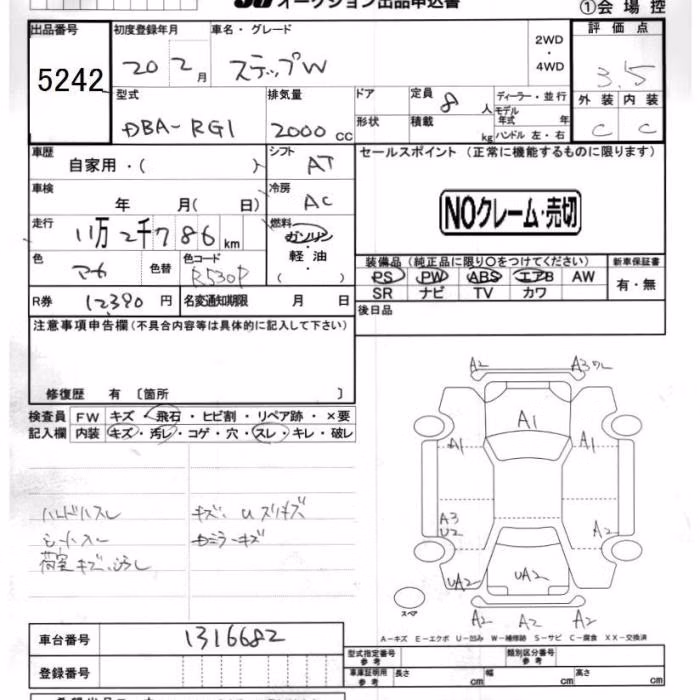 オークション出品申込書
①会場控
出品番号
5242
初度登録年月
20 2月
車名・グレード
ステップW
2WD
・
4WD
評価点
3.5
外装 内装
C C
型式
DBA-RG1
排気量
2000 cc
ドア
形状
定員 8 人
積載 kg
ディーラー・並行
モデル年式 年
ハンドル 左・右
車歴
自家用・( )
シフト
AT
車検
年 月( 日)
冷房
AC
走行
11万2千786km
燃料
ガソリン
軽・油
( )
色
アカ
色替
色コード
R530P
R券 12,390円
名変通知期限 月 日
セールスポイント (正常に機能するものに限ります)
NOクレーム・売切
装備品 (純正品に限り○をつけてください)
PS PW ABS エアB AW
SR ナビ TV カワ
新車保証書
有・無
後日品
注意事項申告欄(不具合内容等は具体的に記入して下さい)
修復歴 有 〔箇所 〕
検査員
記入欄
FW キズ・飛石・ヒビ割・リペア跡・×要
内装 キズ・汚レ・コゲ・穴・スレ・キレ・破レ
ハンドルスレ
シートスレ
荷室キズ、
A2
A3
A1
A1
A1
A3
U2
A2
UA2
UA2
A2
A2
A2
スペア
A-キズ E-エクボ U-凹み W-補修跡 S-サビ C-腐食 XX-交換済
車台番号
1316682
登録番号
型式指定番号
参考
類別区分番号
参考
車庫証明用
参考
長さ cm
幅 cm
高さ cm